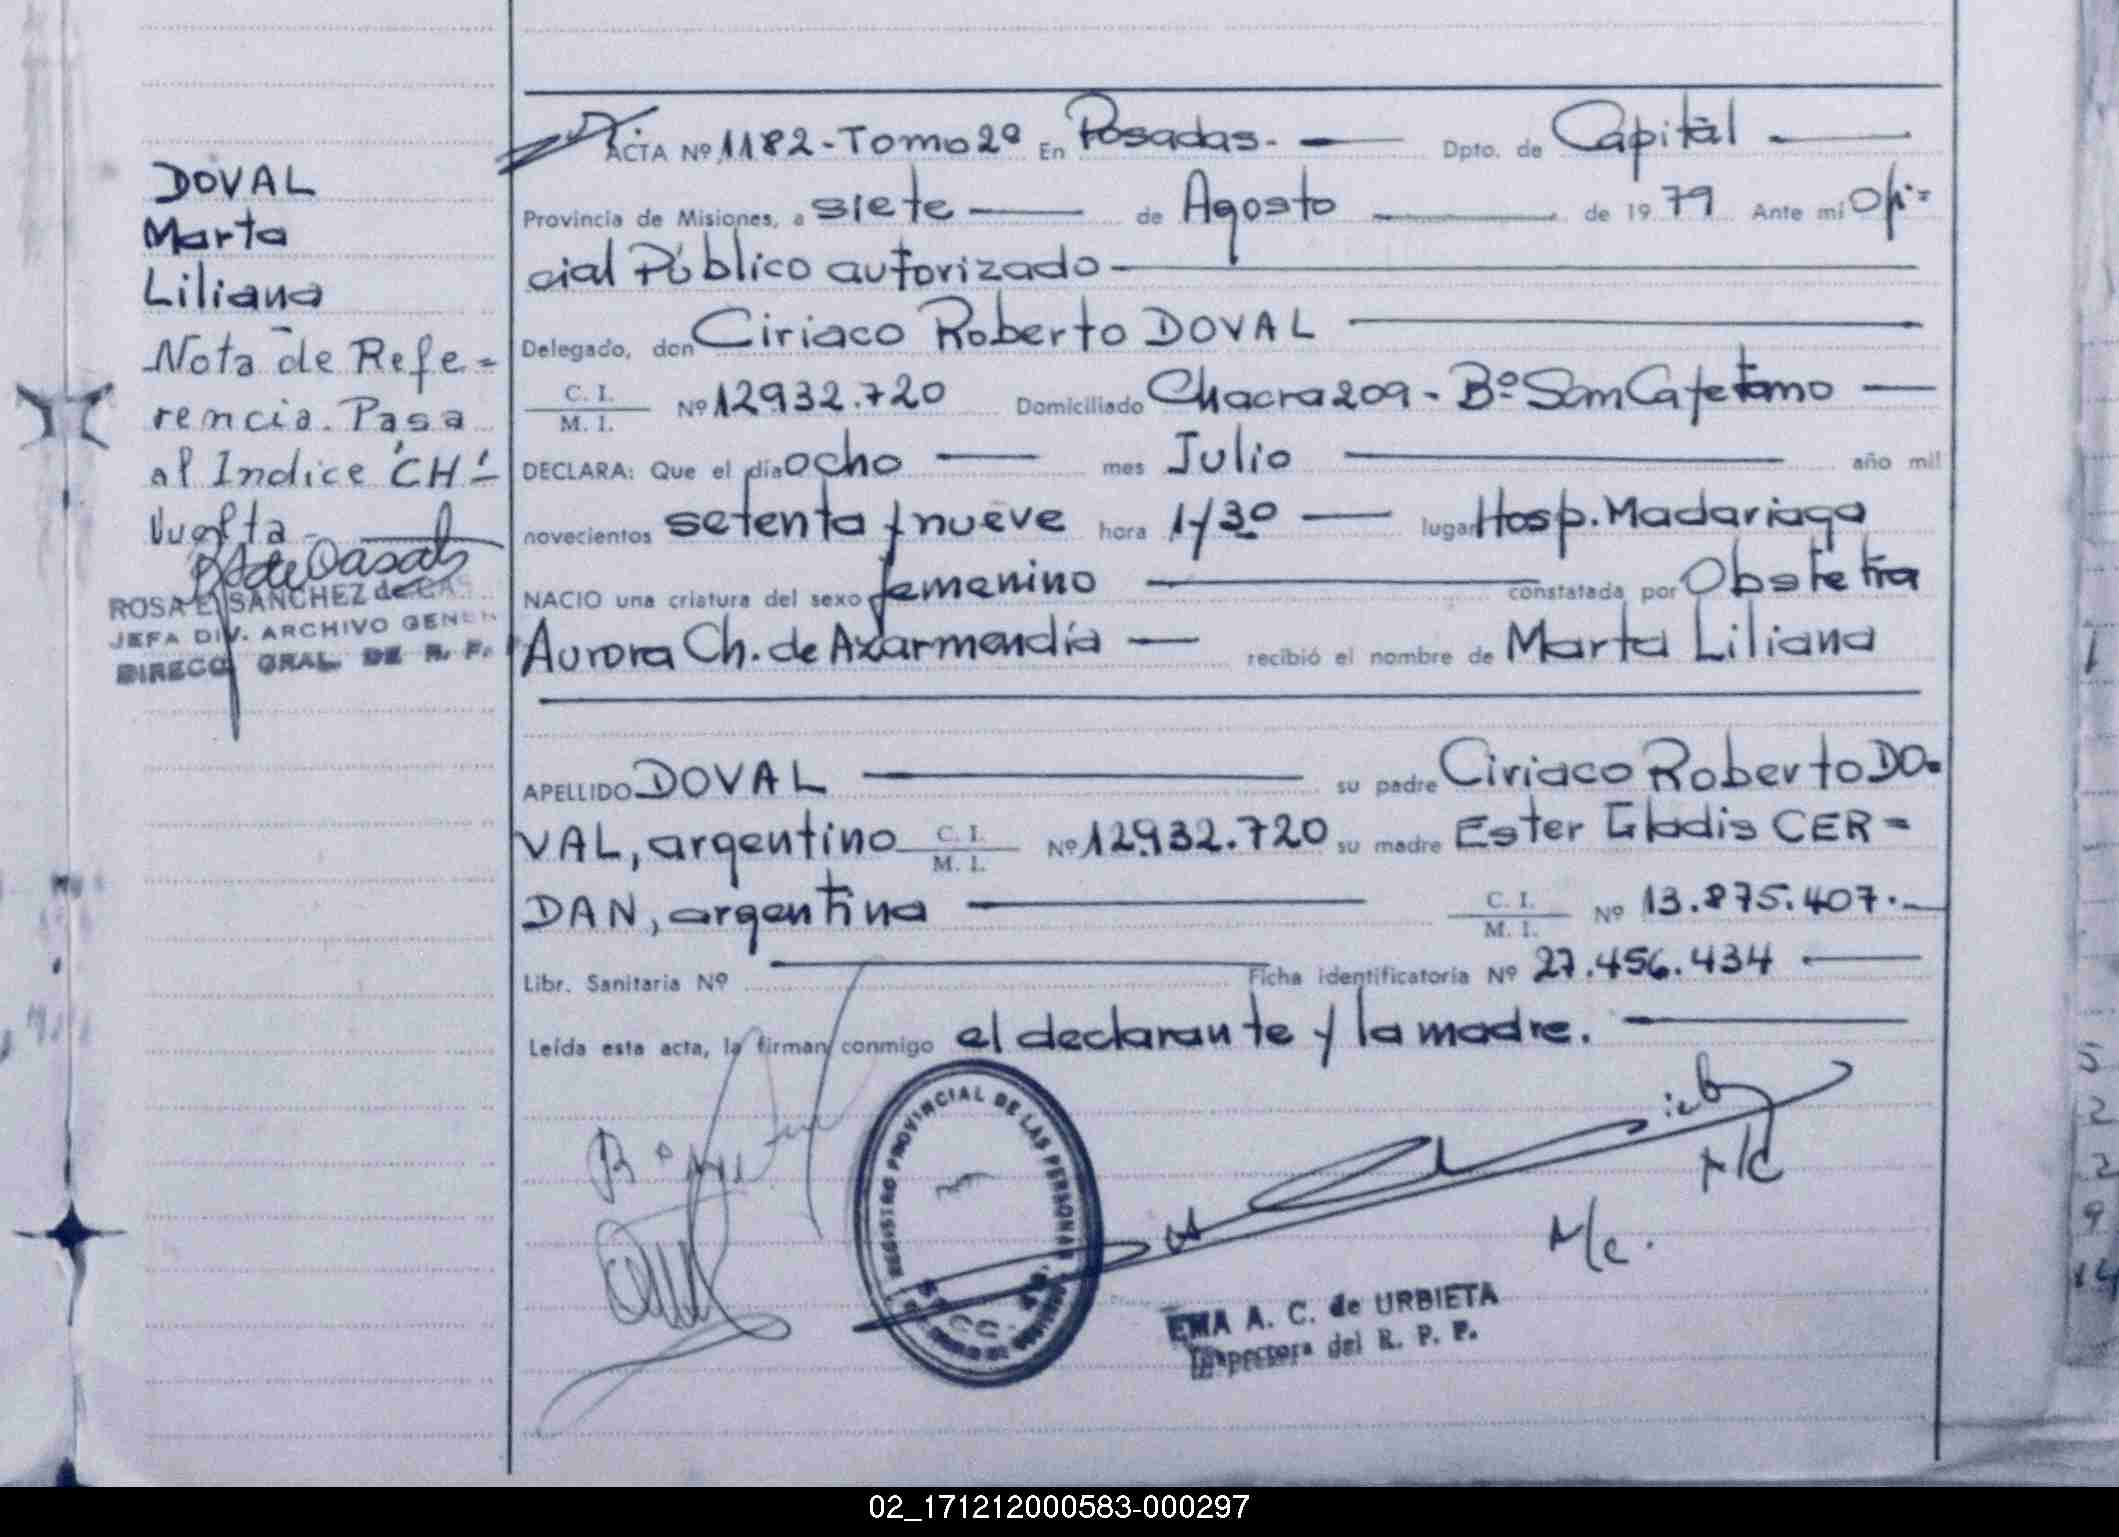 ACTA Nº 1182-Tomo 2º En Posadas. Dpto. de Capital
Provincia de Misiones, a siete de Agosto de 1979 Ante mi Ofi=
cial Público autorizado
Delegado, don Ciriaco Roberto DOVAL
C. I.
M. I. Nº 12932.720 Domiciliado Chacra 209 - Bº San Cafetano
DECLARA: Que el día ocho mes Julio año mil
novecientos setenta y nueve hora 1/30 lugar Hosp. Madariaga
NACIO una criatura del sexo femenino constatada por Obstetra
Aurora Ch. de Axarmendía recibió el nombre de Marta Liliana
APELLIDO DOVAL su padre Ciriaco Roberto DO=
VAL, argentino C. I.
M. I. Nº 12.932.720 su madre Ester Gladis CER=
DAN, argentina C. I.
M. I. Nº 13.875.407.
Libr. Sanitaria Nº Ficha identificatoria Nº 27.456.434
Leída esta acta, la firman conmigo el declarante y la madre.
DOVAL
Marta
Liliana
Nota de Refe=
rencia. Pasa
al Indice "CH"
Vuelta
ROSA E. SANCHEZ de CAS
JEFA DIV. ARCHIVO GENER
DIRECC. GRAL. DE R. P.
REGISTRO PROVINCIAL DE LAS PERSONAS
M/C
M/c.
EMA A. C. de URBIETA
Inspectora del R. P. P.
5
2
2
9
14
02_171212000583-000297